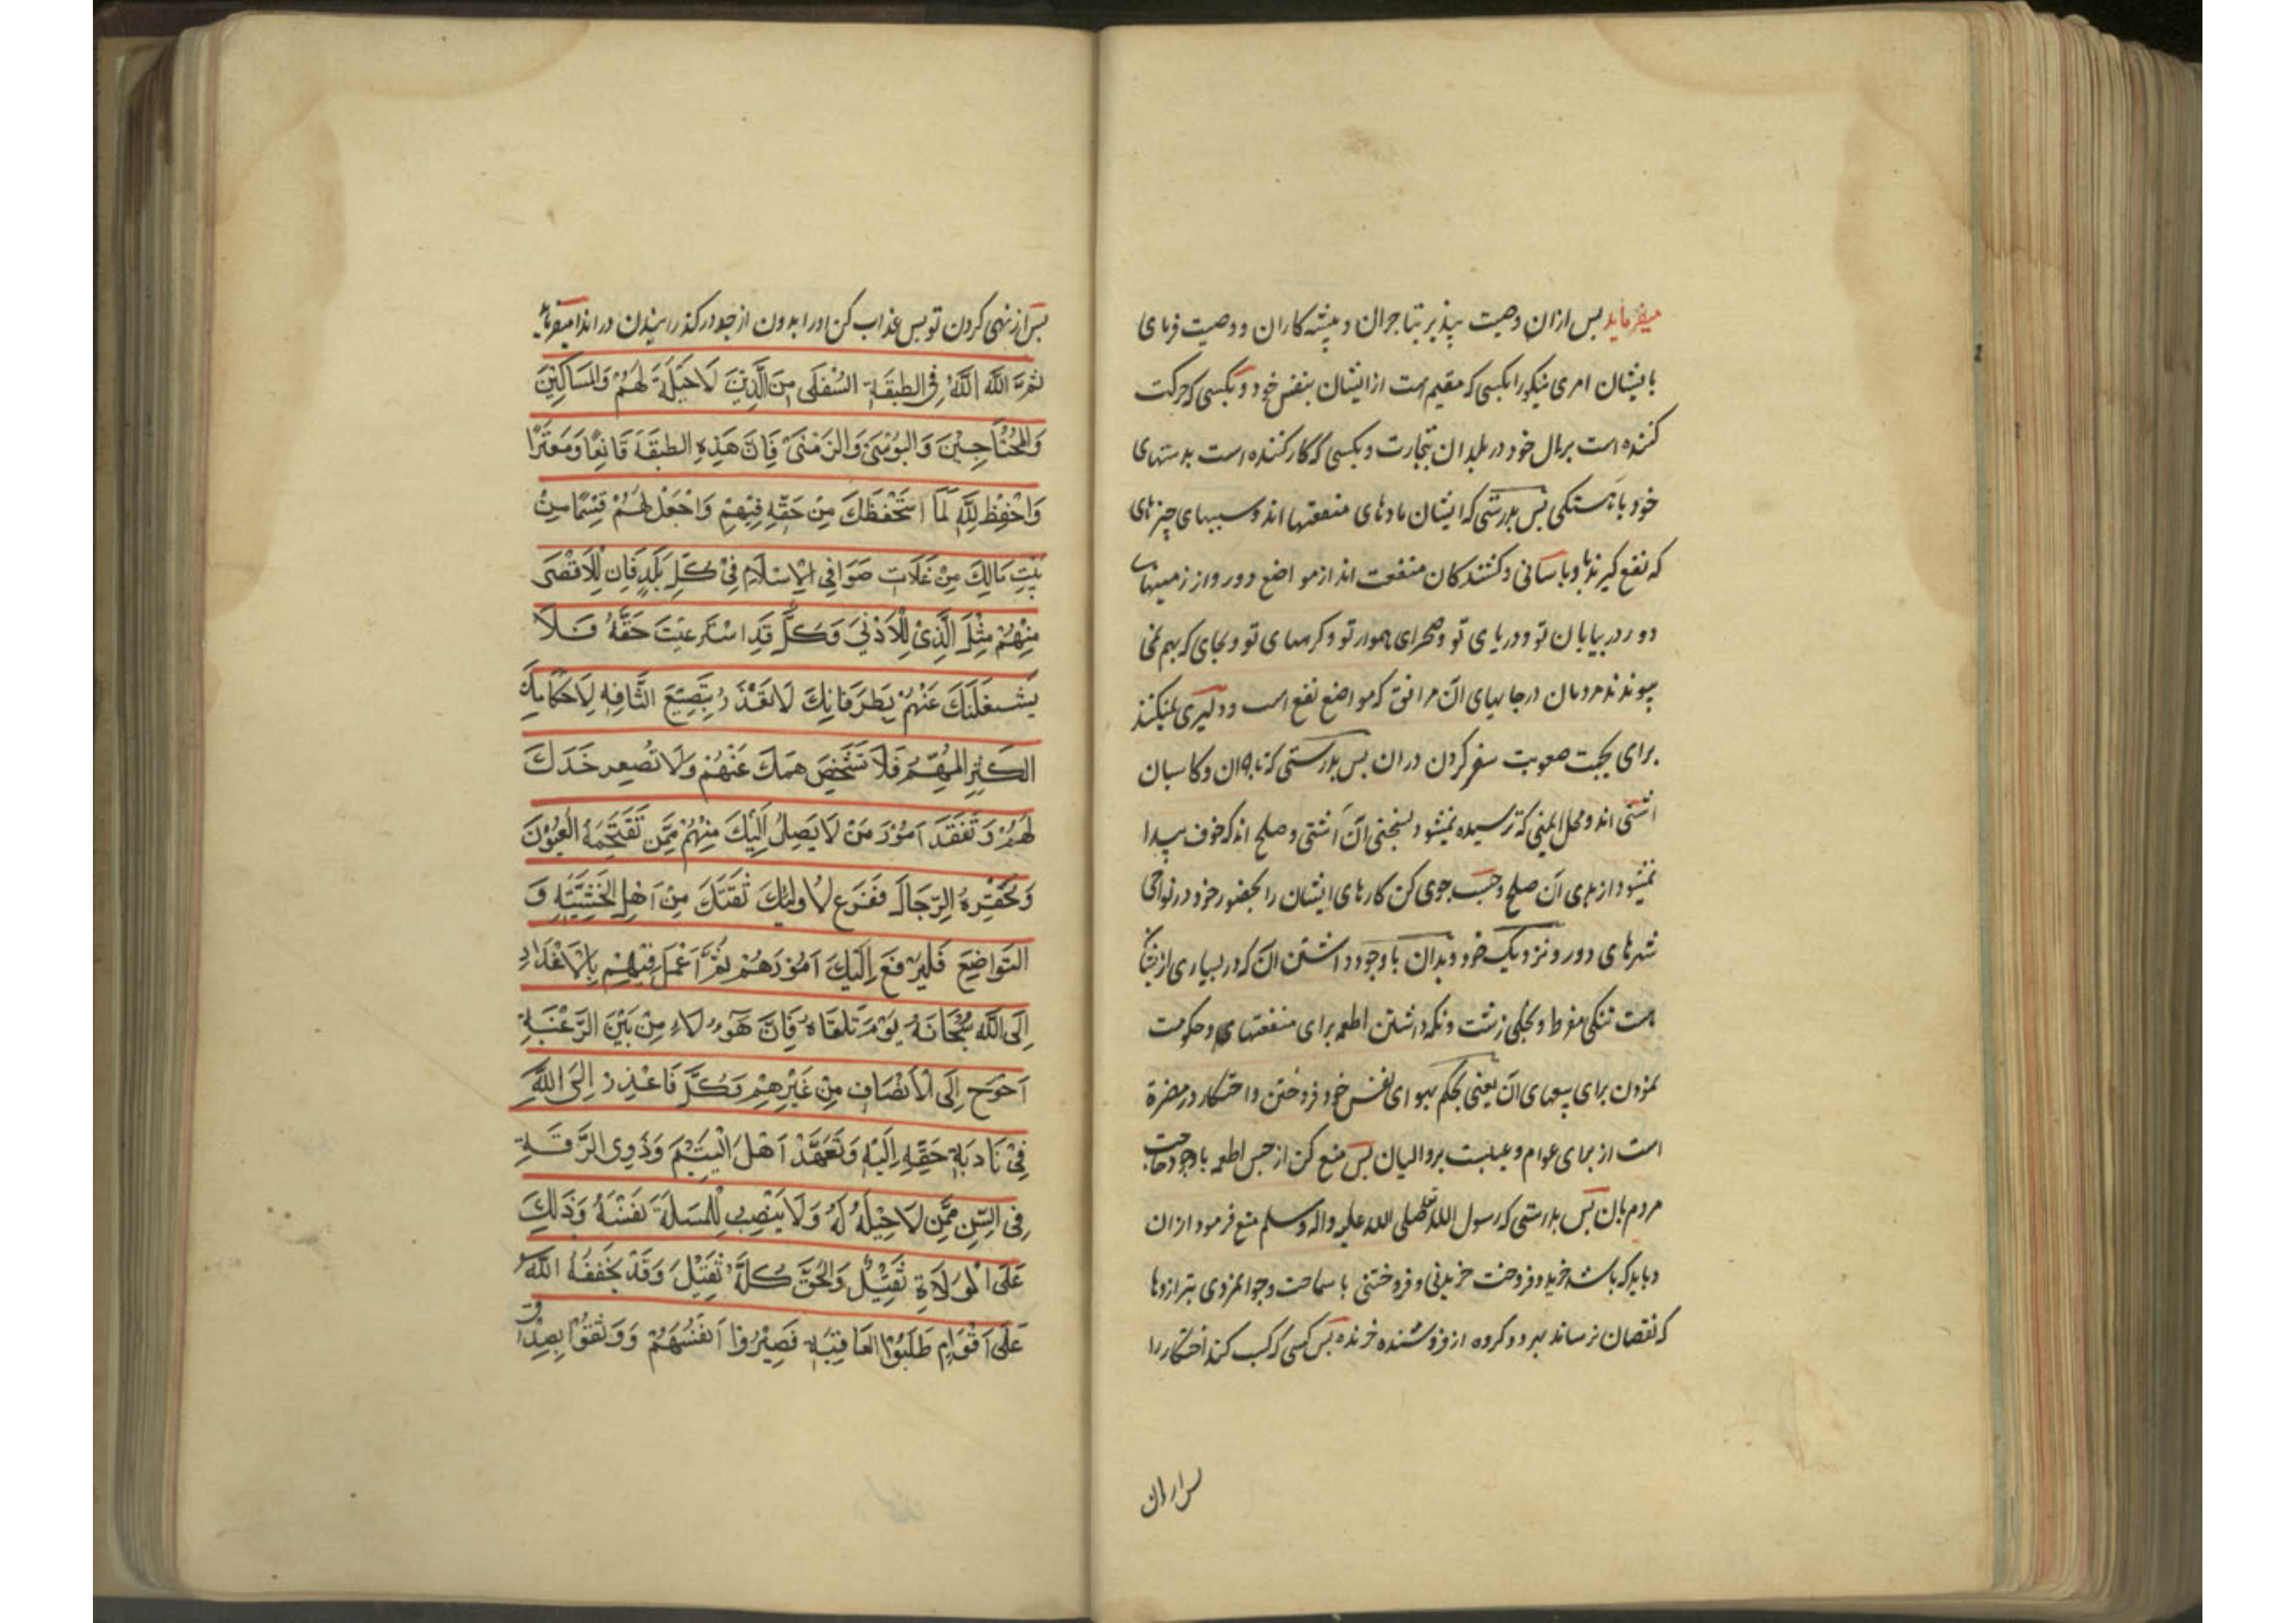 میفرماید پس ازان وصیت پپذیر بتاجران و پیشه کاران و وصیت فرمای
بایشان امری نیکو را بکسی که مقیم است از ایشان بنفس خود و بکسی که حرکت
کننده است بمال خود در بلدان بتجارت و بکسی که کار کننده است بدستهای
خود پس بدرستی که ایشان مادهای منفعتها اند و سببهای چیزهای
که نفع گیرند و باسانی و کشندکان منفعت اند از مواضع دور و از زمینهای
دور در بیابان تو و دریای تو و صحرای هموار تو و کوههای تو و بجای که بهم نمی
پیوندند مردمان در جایهای آن مرافق که مواضع نفع است و دلیری نمیکنند
برای بجهت صعوبت سفر کردن در ان پس بدرستی که تاجران و کاسبان
آشتی اند و محل ایمنی که ترسیده نمیشود بسختی آن آشتی و صلح اند که خوف پیدا
نمیشود از برای آن صلح و جست جوی کن کارهای ایشان را بحضور خود و در نواحی
شهرهای دور و نزدیک خود و بدان با وجود داشتن آن که در بسیاری از ایشان
است تنکی مفرط و بخلی زشت و نکه داشتن اطعمه برای منفعتهای و حکومت
نمودن برای بیعهای آن یعنی بحکم بهوای نفس خود فروختن و احتکار در مضرة
است از برای عوام و عیبست بر والیان پس منع کن از حبس اطعمه با وجود حاجت
مردم بان پس بدرستی که رسول الله صلی الله علیه واله وسلم منع فرمود از ان
و باید که باشد خرید و فروخت خریدنی و فروختنی با سماحت و جوانمردی بترازوها
که نقصان نرساند بهر دو کروه از فروشنده و خرنده پس کسی که کسب کند احتکار را
پس از ان
پس از نهی کردن تو پس عذاب کن او را بدون از حد در گذرانیدن در اندا میفرماید
ثُمَّ اللّٰه اللّٰهَ فِي الطبقَةِ السُّفلَى مِنَ الَّذِينَ لَا حِيلَةَ لَهُمْ وَالمَسَاكِيْنَ
وَالمُحْتَاجِيْنَ وَالبُؤْسَىٰ وَالزَمْنَىٰ فَاِنَّ هَذِهِ الطبقَةَ قَانِعًا وَمَعتَرًا
وَاحْفِظْ لِلّٰهِ لَمَا اسْتَحْفَظَكَ مِنْ حَقِّهِ فِيْهِمْ وَاجْعَلْ لَهُمْ قِسْمًا مِنْ
بَيْتِ مَالِكَ مِنْ غَلَّاتِ صَوَافِي الْاِسْلَامِ فِيْ كُلِّ بَلَدٍ فَاِن لِلْاَقْصَى
مِنْهُمْ مِثْلَ الَّذِيْ لِلْاَدْنَىٰ وَكُلٌّ قَدِ اسْتَرْعِيْتَ حَقَّهُ فَلَا
يَشْغَلَنَكَ عَنْهُمْ بَطَر فَانِكَ لَا تَعْذَرُ بِتَضِيْيعِ التَّافِهِ لِاَحْكَامِكَ
الكَثِيْرَ المُهِمَّ فَلَا تَشْخِصْ هَمَكَ عَنْهُمْ وَلَا تُصَعِر خَدَكَ
لَهُمْ وَتَفَقَّدَ اُمُوْرَ مَنْ لَا يَصِلُ اِلَيْكَ مِنْهُمْ مِمَّن تَقْتَحِمَهُ الْعُيُوْنَ
وَتحْقَرُهُ الرِّجَالُ فَفَرِّع لِاولٰئِكَ ثِقَتَكَ مِنْ اَهْلِ الْخَشْيَةِ وَ
التَوَاضِعَ فَلْيَرْفَعَ اِلَيْكَ اُمُوْرَهُمْ ثُمَّ اَعْمَل فِيْهِمْ بِالْاِعْذَارِ
اِلَى اللّٰه سُبْحَانَهُ يَوْمَ تَلقَاهُ فَاِنَّ هَٰؤُلَاءِ مِنْ بَيْنِ الرَّعِيَّةِ
اَحْوَج اِلَى الْاِنْصَافِ مِنْ غَيْرِهِمْ وَكُلٌّ فَاعْذِرْ اِلَى اللّٰهِ
فِيْ تَادِيَةِ حَقِّهِ اِلَيْهِ وَتَعَهَّدْ اَهْلَ الْيُتْمَ وَذَوِي الرِّقَةِ
فِي السِّنِ مِمَّن لَا حِيْلَةَ لَهُ وَلَا يَنْصِبُ لِلْمَسْئَلَةِ نَفْسَهُ وَذٰلِكَ
عَلَى الْوُلَاةِ ثَقِيْلٌ وَالْحَقُّ كُلُّهُ ثَقِيْلٌ وَقَدْ يُخَفِّفُهُ اللّٰه
عَلَى اَقْوَامٍ طَلَبُوْا العَاقِبَةَ فَصَبَّرُوْا اَنْفُسَهُمْ وَوَثِقُوْا بِصِدْقِ